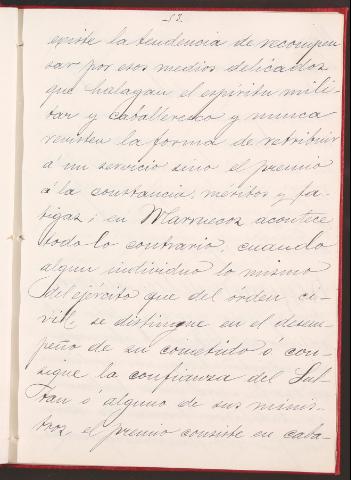 53.
existe la tendencia de recompen
sar por esos medios delicados
que halagan el espíritu mili-
tar y caballeresco y nunca
revisten la forma de retribuir
á un servicio sino el premio
á la constancia, méritos y fa-
tigas; en Marruecos acontece
todo lo contrario, cuando
algun individuo lo mismo
del ejército que del órden ci-
vil, se distingue en el desem-
peño de su cometido ó con-
sigue la confianza del Sul-
tan ó alguno de sus minis-
tros, el premio consiste en caba-